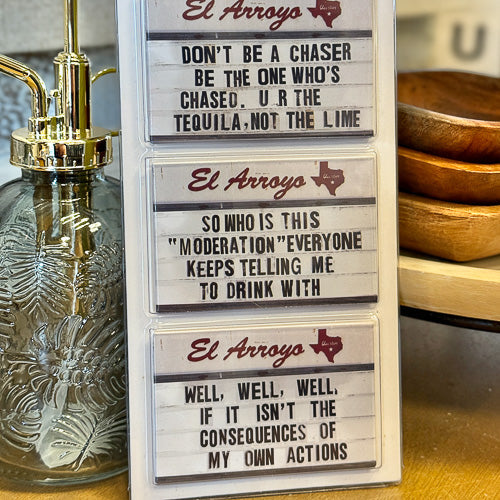 El Arroyo
DON'T BE A CHASER
BE THE ONE WHO'S
CHASED. U R THE
TEQUILA, NOT THE LIME
El Arroyo
SO WHO IS THIS
"MODERATION" EVERYONE
KEEPS TELLING ME
TO DRINK WITH
El Arroyo
WELL, WELL, WELL,
IF IT ISN'T THE
CONSEQUENCES OF
MY OWN ACTIONS
U